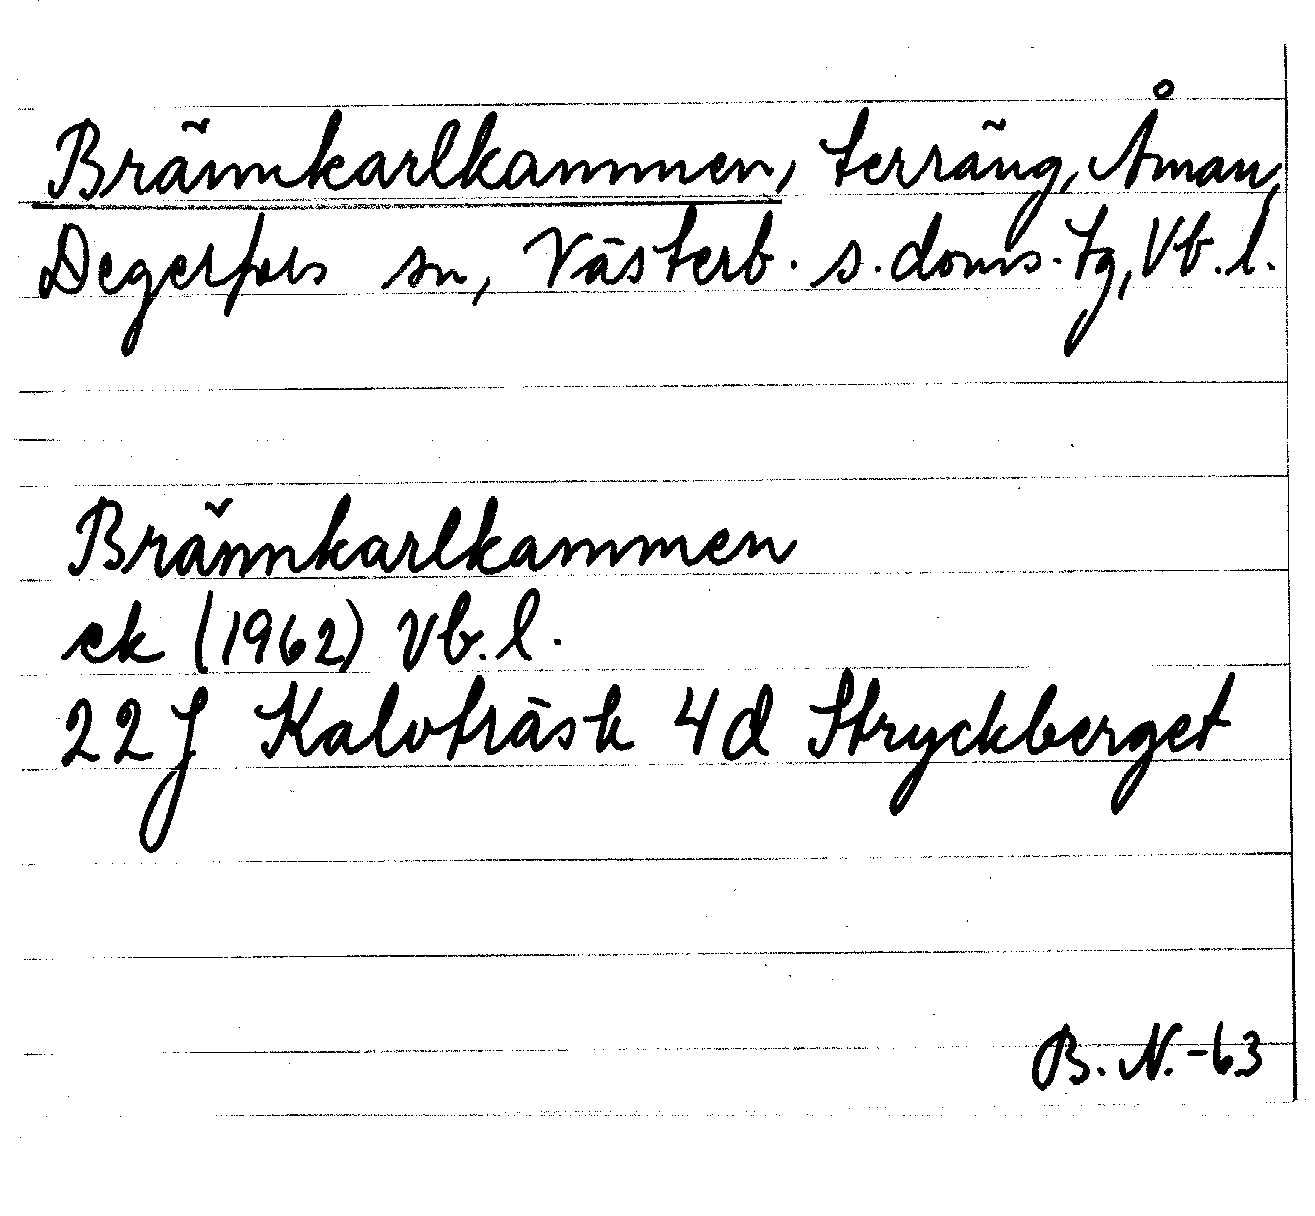 Brännkarlkammen, terräng, Åman,
Degerfors sn, Västerb. s. doms. tg, Vb. l.
Brännkarlkammen
ek (1962) Vb. l.
22 J Kalvträsk 4d Stryckberget
B. N. -63